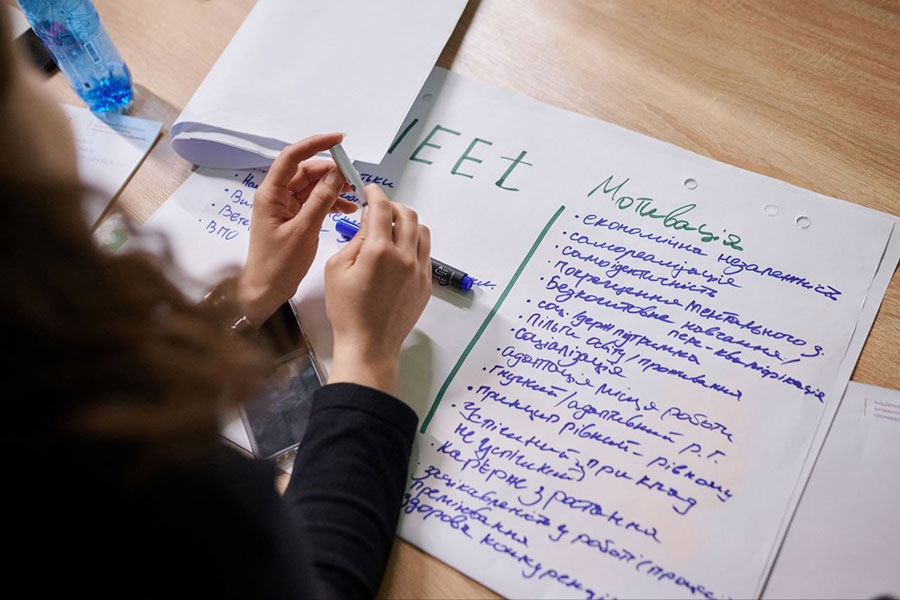 NEEt
Вете
ВПО
Мотивація
• економічна незалежність
• самореалізація
• самоідентичність
• покращення ментального з.
• Безкоштовне навчання/
пере-кваліфікація
• соц. держ підтримка
• пільги світу/проживання
• соціалізація
• адаптація місця роботи
• гнучкий/адаптивний р.г.
• принцип рівний - рівному
• Успішний приклад
не успішний)
• кар'єрне зростання
• зацікавленість у роботі (процесі
• преміювання
• здорова конкуренція